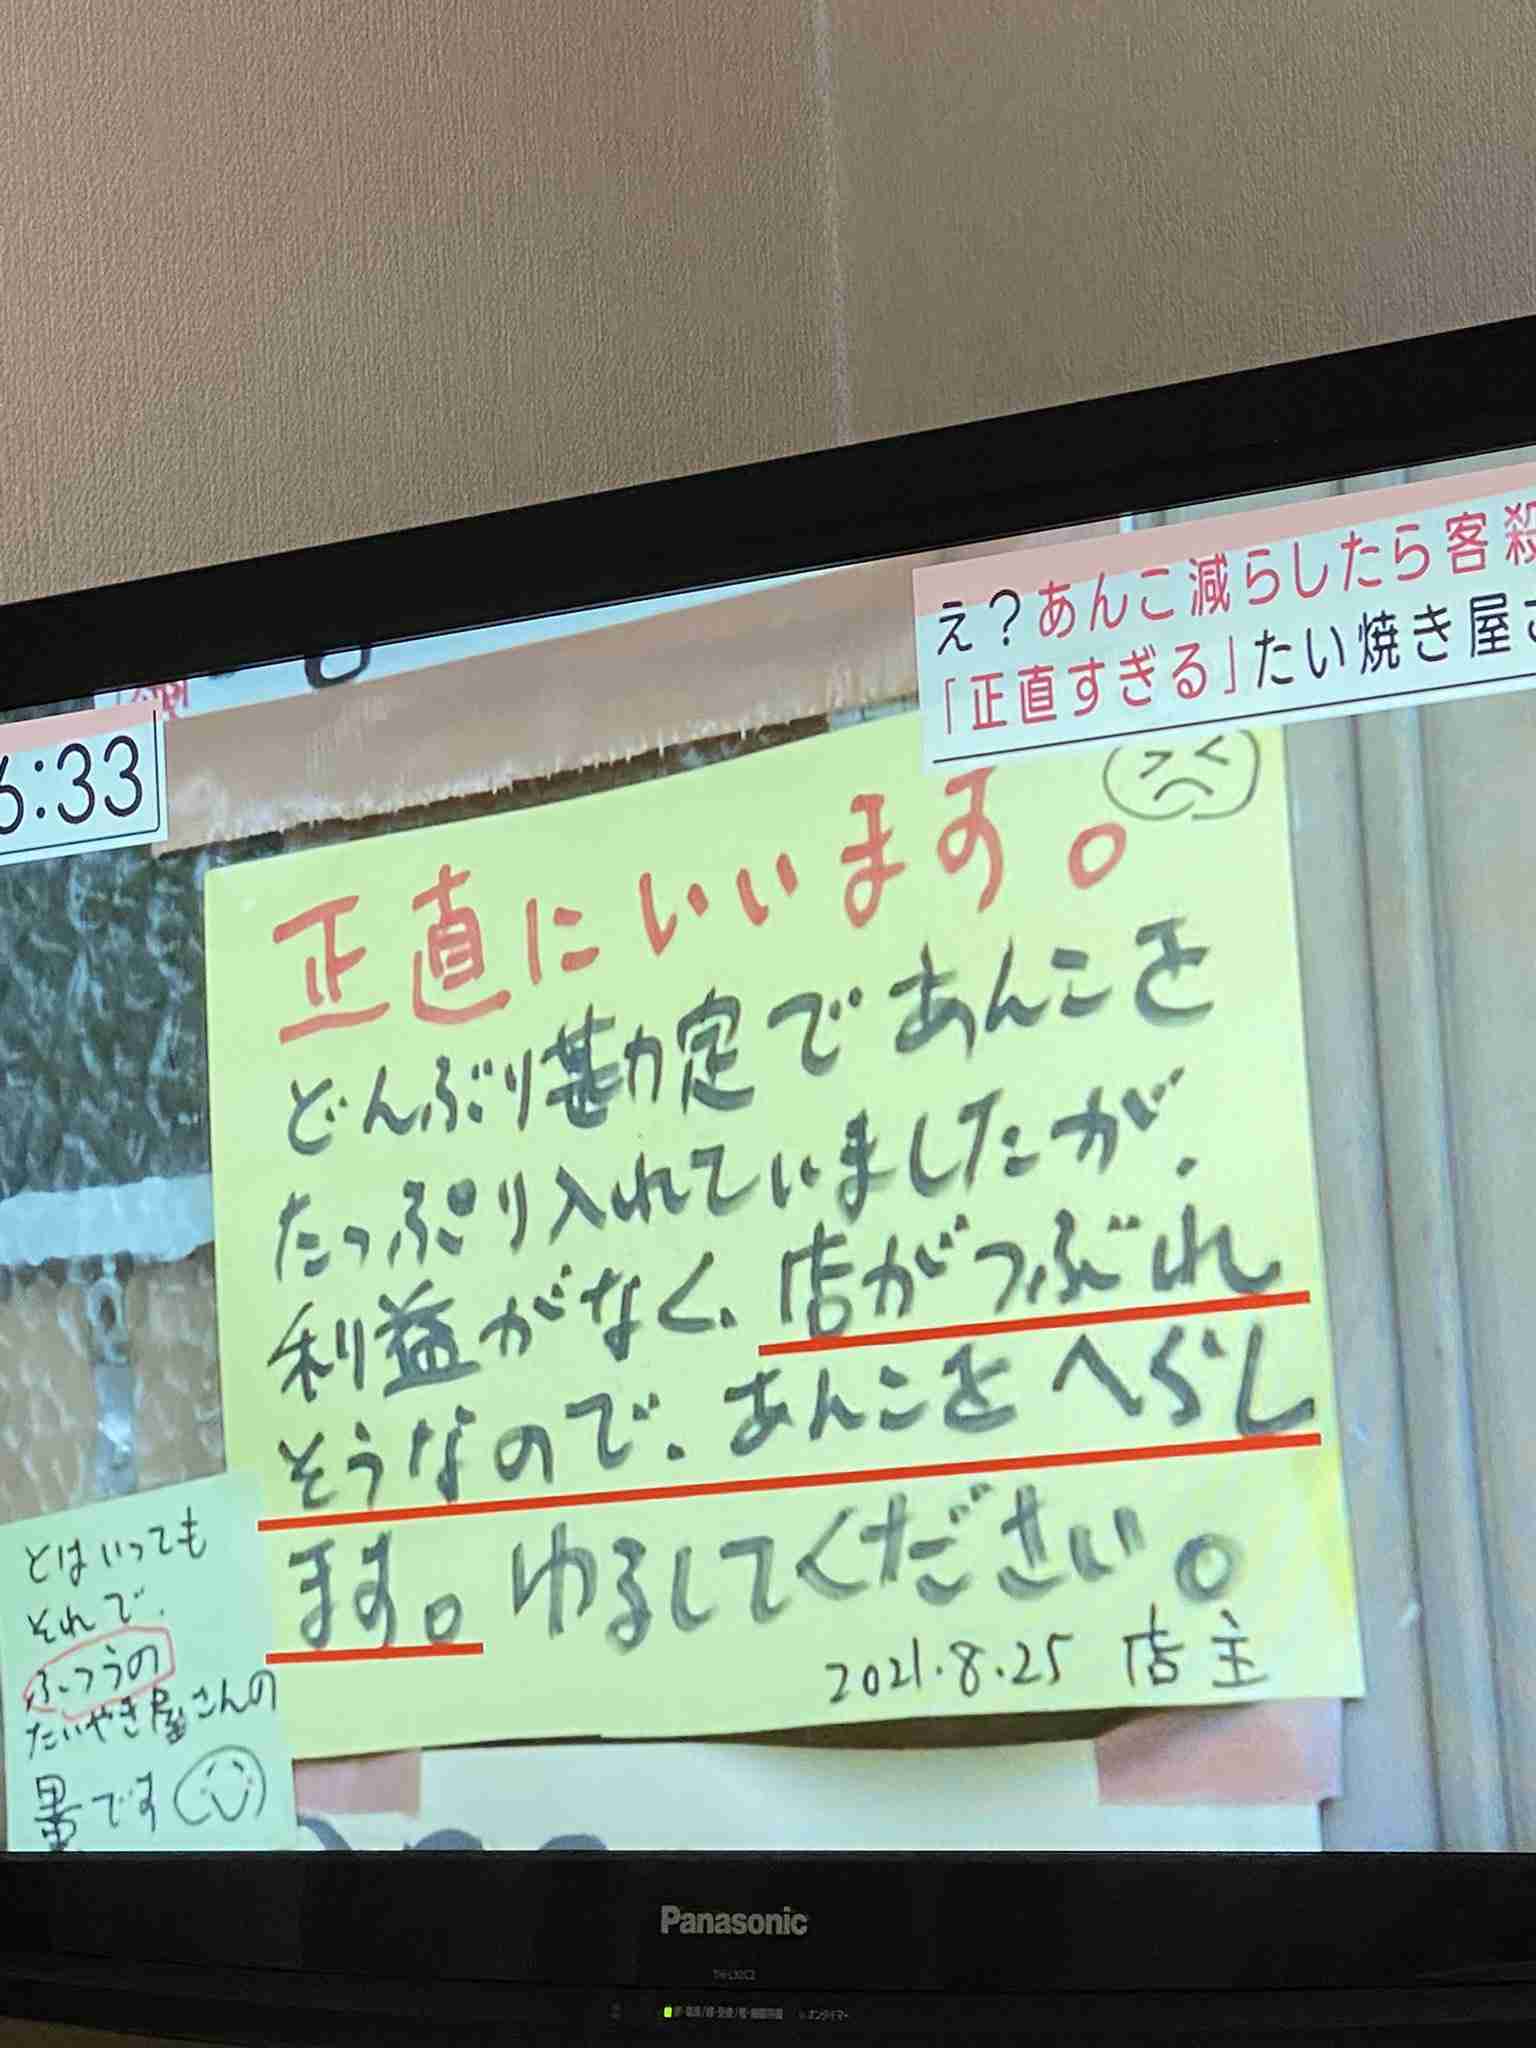 え？あんこ減らしたら客殺
「正直すぎる」たい焼き屋さ
6:33
正直にいいます。
どんぶり勘定であんこを
たっぷり入れていましたが、
利益がなく、店がつぶれ
そうなので、あんこをへらし
ます。ゆるしてください。
2021.8.25 店主
とはいっても
それで、
ふつうの
たいやき屋さんの
量です
Panasonic
オンタイマー